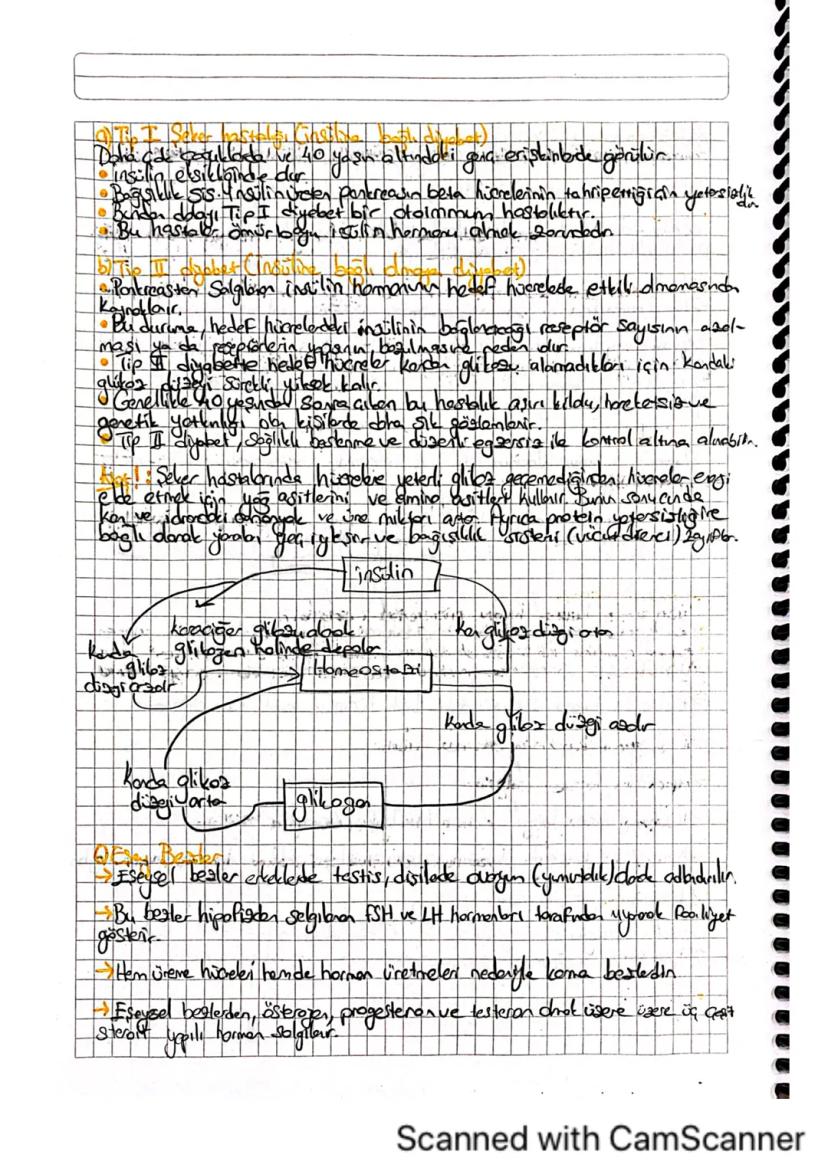 a) Tip I Şeker hastalığı (insüline bağlı diyabet)
Daha çok çocuklarda ve 40 yaşın altındaki genç erişkinlerde görülür.
• insülin eksikliğinde dir.
• Bağışıklık sis. insülin üreten pankreasın beta hücrelerinin tahrip ettiği için yetersizlik dir.
• Bundan dolayı Tip I diyebet bir otoimmun hastalıktır.
• Bu hastalar ömür boyu insilin hormonu almak zorundadır.
b) Tip II diyabet (insüline bağlı olmayan diyabet)
• Pankreasten Salgılanan insilin hormonunun hedef hücrelede etkili olmamasından
kaynaklanır.
• Bu duruma, hedef hücrelerdeki insilinin bağlanacağı reseptör sayısının azal-
ması ya da reseptörlerin yapısının bozulmasına neden olur.
• Tip II diyabette hedef hücreler kandan glikozu alamadıkları için kandaki
glikoz düzeyi sürekli yüksek kalır.
• Genellikle 40 yaşından sonra çıkan bu hastalık aşırı kilolu, hareketsiz ve
genetik yatkınlığı olan kişilerde daha sık gözlemlenir.
• Tip II diyabet, sağlıklı beslenme ve düzenli egzersiz ile kontrol altına alınabilir.
Not!: Şeker hastalarında hücrelere yeterli glikoz geçemediğinden, hücreler enerji
elde etmek için yağ asitlerini ve amino asitleri kullanır. Bunun sonucunda
kan ve idrardaki amonyak ve üre miktarı artar. Ayrıca protein yetersizliğine
bağlı olarak yaralar geç iyileşir ve bağışıklık sistemi (vücut direnci) zayıflar.
insülin
karaciğer glikozu alarak
glikozen halinde depolar
Kan glikoz düzeyi artar
Kanda
glikoz
düzeyi azalır
Homeostazi
Kanda glikoz düzeyi azalır
Kanda glikoz
düzeyi artar
glikogan
c) Eşey Bezler
→ Eşeysel bezler erkeklerde testis, dişilerde ovaryum (yumurtalık) olarak adlandırılır.
→ Bu bezler hipofizden salgılanan FSH ve LH hormonları tarafından uyarılarak faaliyet
gösterir.
→ Hem üreme hücreleri hemde hormon üretmeleri nedeniyle karma bezlerdir
→ Eşeysel bezlerden, östrojen, progesteron ve testeron olmak üzere üzere üç çeşit
steroit yapılı hormon salgılanır.
Scanned with CamScanner